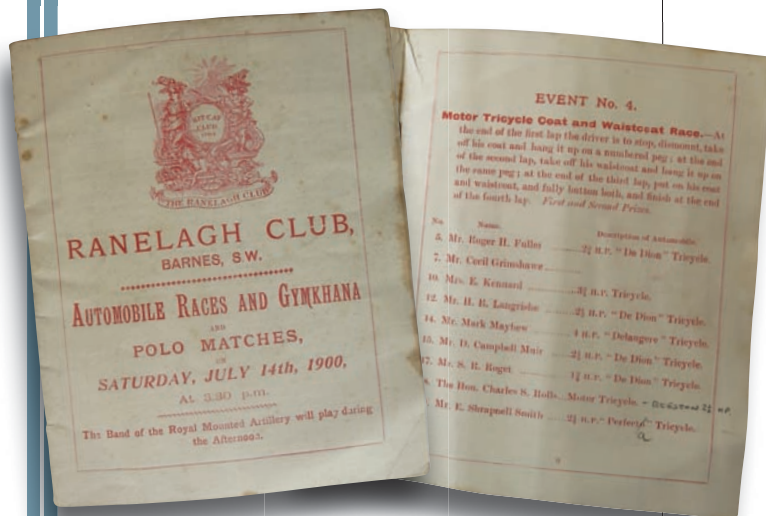 KIT-CAT
CLUB
THE RANELAGH CLUB
RANELAGH CLUB,
BARNES, S.W.
AUTOMOBILE RACES AND GYMKHANA
AND
POLO MATCHES,
ON
SATURDAY, JULY 14th, 1900,
At 3.30 p.m.
The Band of the Royal Mounted Artillery will play during
the Afternoon.
EVENT No. 4.
Motor Tricycle Coat and Waistcoat Race.—At
the end of the first lap the driver is to stop, dismount, take
off his coat and hang it up on a numbered peg; at the end
of the second lap, take off his waistcoat and hang it up on
the same peg; at the end of the third lap, put on his coat
and waistcoat, and fully button both, and finish at the end
of the fourth lap. First and Second Prizes.
No. Name. Description of Automobile.
5. Mr. Roger H. Fuller ...... 2¾ H.P. "De Dion" Tricycle.
7. Mr. Cecil Grimshawe ......
10. Mrs. E. Kennard ...... Tricycle.
12. Mr. H. R. Langrishe ...... H.P. "De Dion" Tricycle.
14. Mr. Mark Mayhew ...... 4 H.P. Tricycle.
15. Mr. D. Campbell Muir ...... H.P. "De Dion" Tricycle.
17. Mr. S. R. Roget ...... H.P. "De Dion" Tricycle.
The Hon. Charles S. Rolls ... Motor Tricycle. H.P.
Mr. E. Shrapnell Smith ...... H.P. Tricycle.